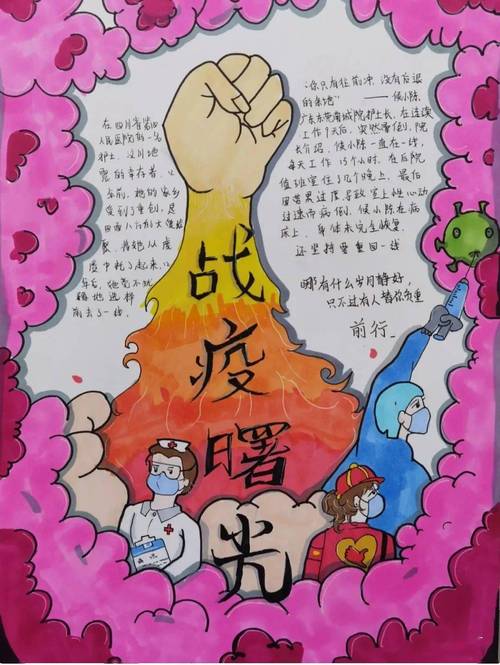 战
疫
曙
光
在四川省第四
人民医院的一名
护士，汶川地
震的幸存者。12
年前，她的家乡
受到了重创，是
四面八方的大爱
聚，将她从废
墟中托了起来，12
年后，她毫不犹
豫地选择
前去了一线。
“你只有往前冲，没有后退
的余地”——侯小陈
广东东莞南城医院护士长，在连续
工作9天后，突然晕倒，院
长介绍，侯小陈一直在一线，
每天工作15个小时，在医院
值班室住了几个晚上，最后
因劳累过度导致室上性心动
过速而病倒，侯小陈在病
床上，身体未完全恢复，
还坚持要重回一线
哪有什么岁月静好，
只不过有人替你负重
前行。